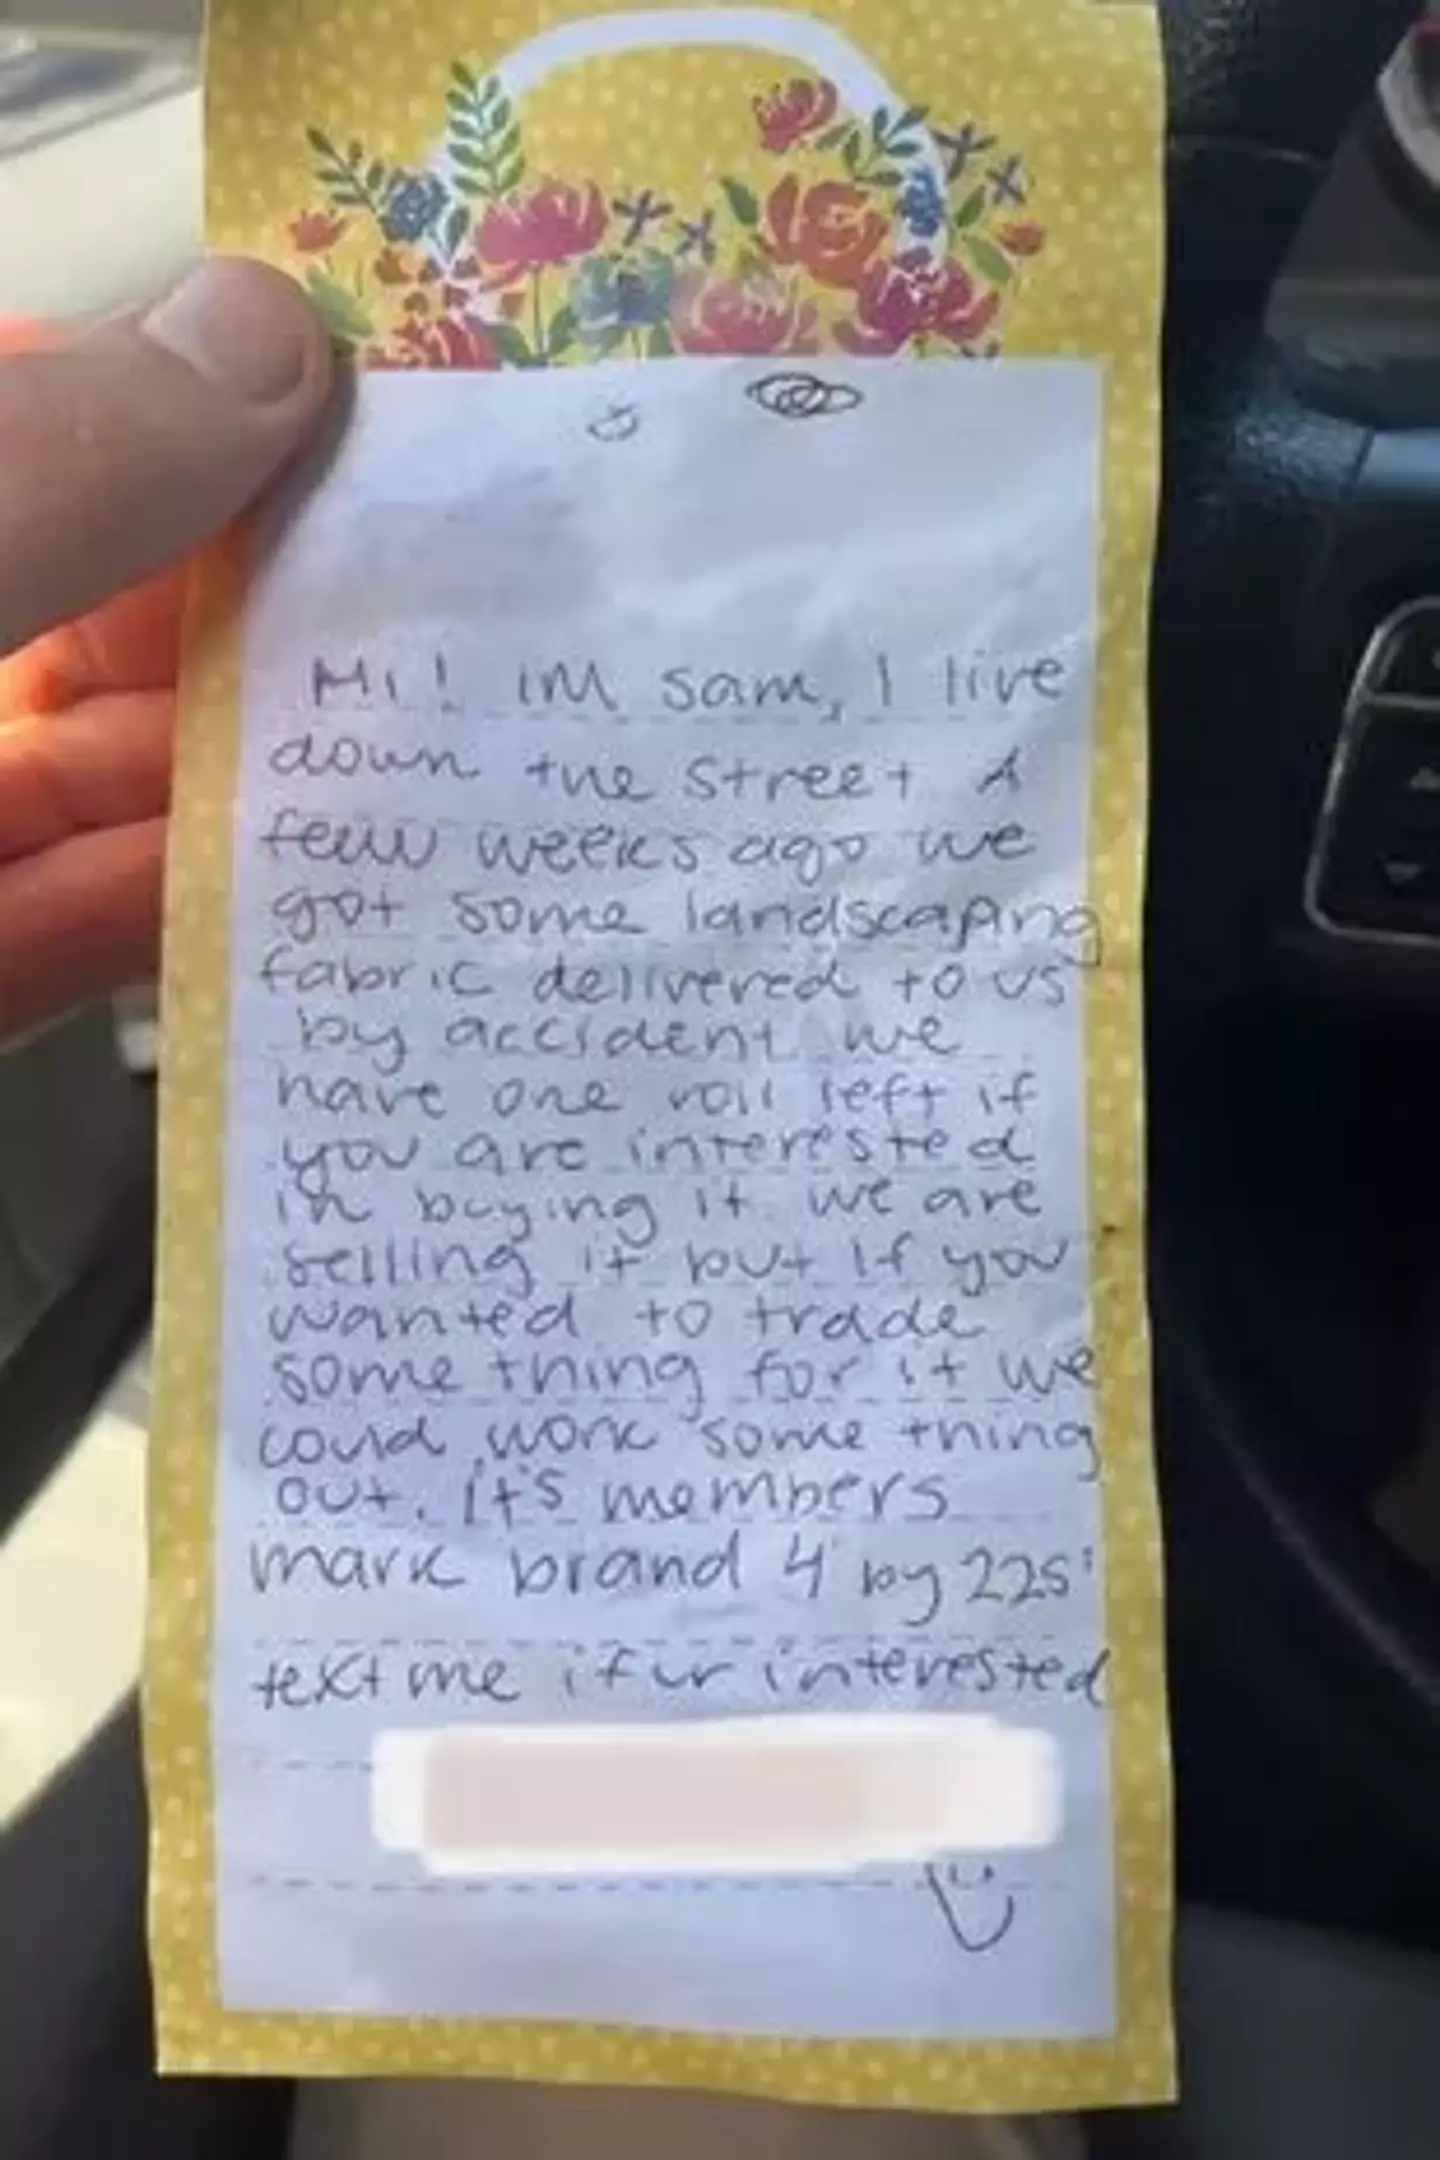 Hi! im sam, I live
down the street. A
few weeks ago we
got some landscaping
fabric delivered to us
by accident we
have one roll left if
you are interested
in buying it. we are
selling it but if you
wanted to trade
some thing for it we
could work some thing
out. it's members
mark brand 4 by 225'
text me if ur interested